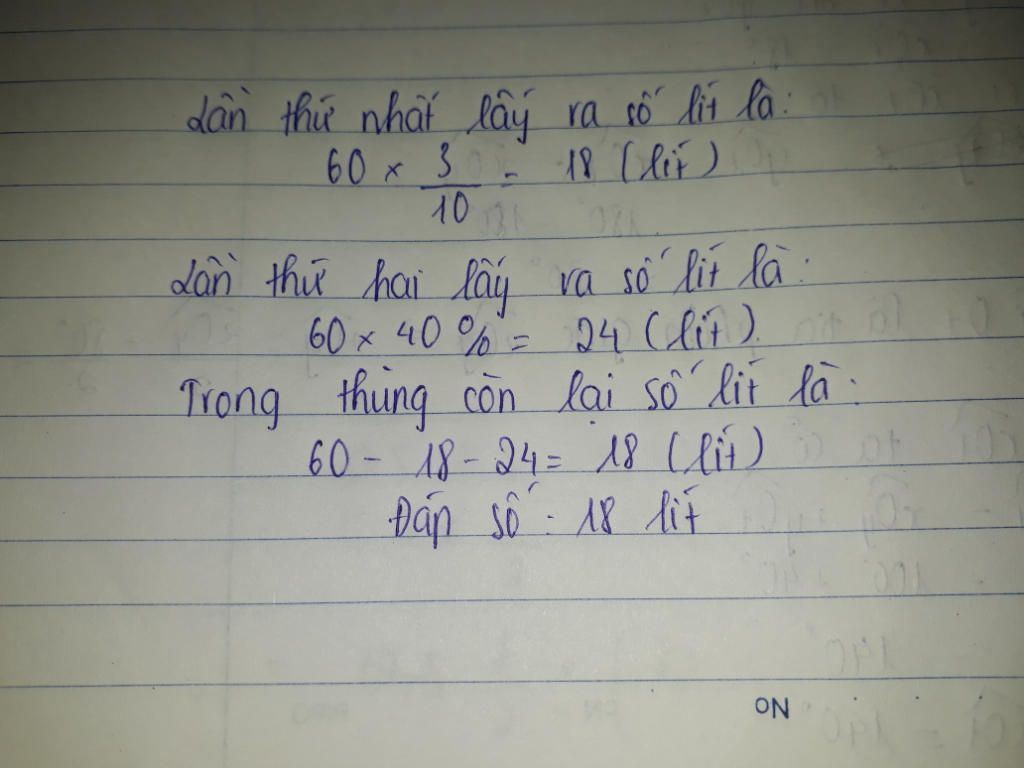 Lần thứ nhất lấy ra số lít là:
60 × 3/10 = 18 (lít)
Lần thứ hai lấy ra số lít là:
60 × 40 % = 24 (lít).
Trong thùng còn lại số lít là:
60 - 18 - 24 = 18 (lít)
Đáp số : 18 lít
NO